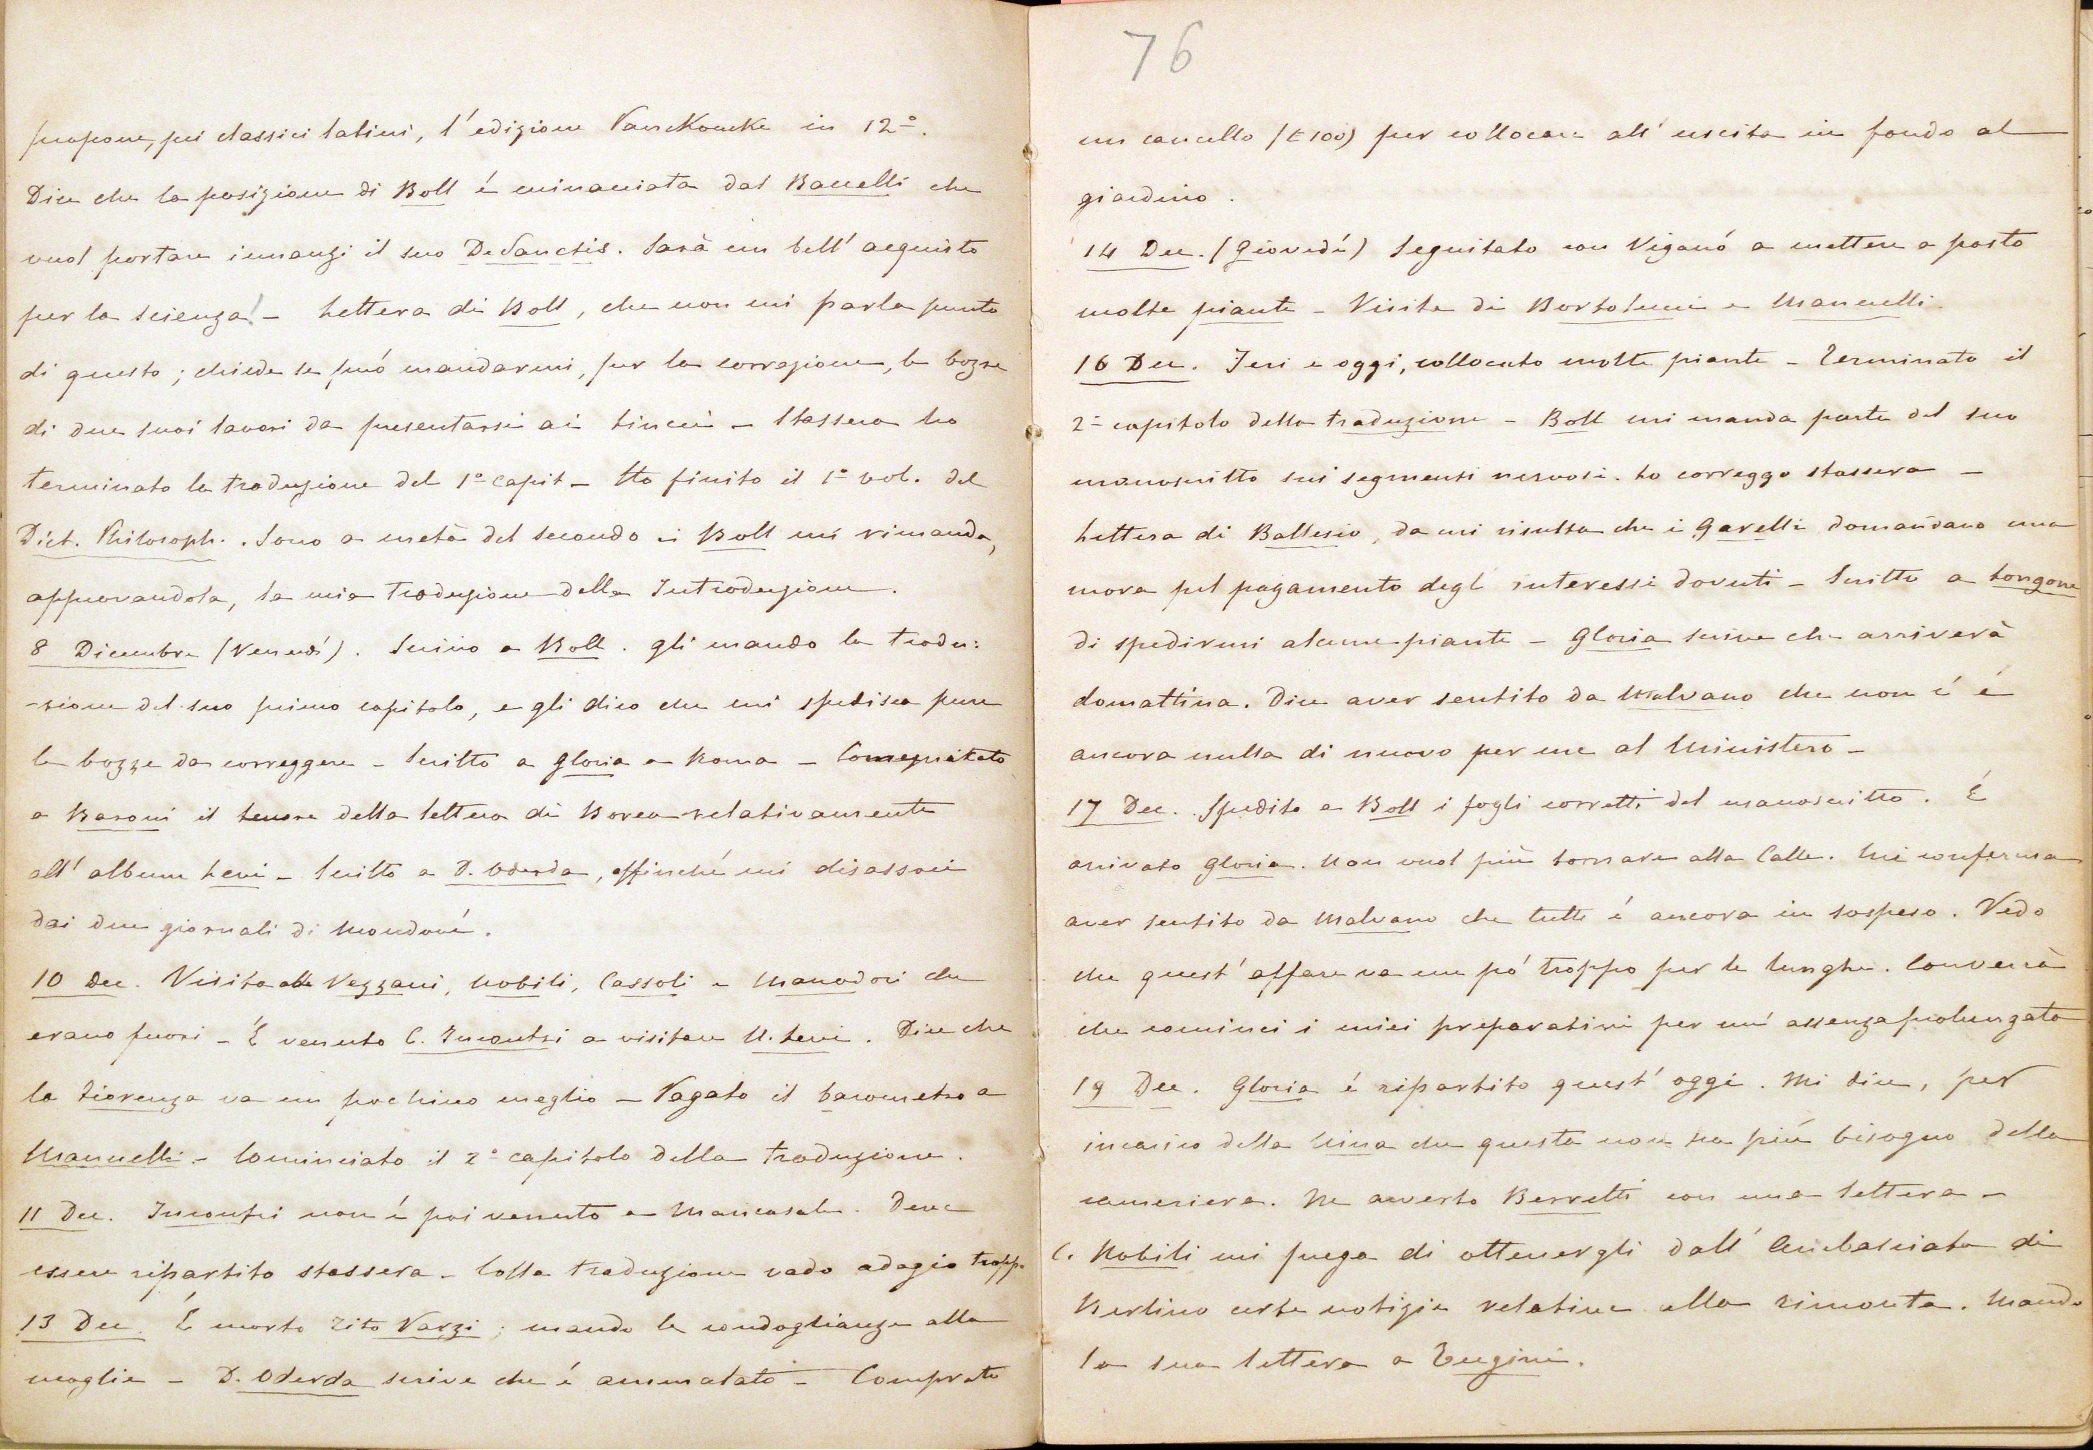 propone, pei classici latini, l'edizione Panckoucke in 12º.
Dice che la posizione di Boll é minacciata dal Baccelli che
vuol portare innanzi il suo DeSanctis. Sarà un bell'acquisto
per la scienza! – Lettera di Boll, che non mi parla punto
di questo; chiede se può mandarmi, per la correzione, le bozze
di due suoi lavori da presentarsi ai Lincei – Stassera ho
terminato la traduzione del 1º capit – Ho finito il 1º vol. del
Dict. Philosoph. . Sono a metà del secondo – Boll mi rimanda,
approvandola, la mia traduzione della Introduzione.
8 Dicembre (Venerdì). Scrivo a Boll. gli mando la tradu:
-zione del suo primo capitolo, e gli dico che mi spedisca pure
le bozze da correggere – Scritto a Gloria a Roma – Comunicato
a Baroni il tenore della lettera di Borea relativamente
all'album Levi – Scritto a D. Oderda, affinché mi disassoci
dai due giornali di Mondoví.
10 Dec. Visita alle Vezzani, Nobili, Cassoli e Manodori che
erano fuori – É venuto C. Incontri a visitare U. Levi. Dice che
la Fiorenza va un pochino meglio – Pagato il barometro a
Mannelli – Cominciato il 2º capitolo della traduzione.
11 Dec. Incontri non é poi venuto a Mancasale. Deve
essere ripartito stassera – Colla traduzione vado adagio tropp
13 Dec É morto Tito Varzi; mando le condoglianze alla
moglie – D. Oderda scrive che é ammalato – Comprato
76
un cancello (£ 100) per collocare all'uscita in fondo al
giardino.
14 Dec. (Giovedí) Seguitato con Viganó a mettere a posto
molte piante – Visita di Bortolucci e Mannelli
16 Dec. Ieri e oggi, collocato molte piante – Terminato il
2º capitolo della traduzione – Boll mi manda parte del suo
manoscritto sui segmenti nervosi. Lo correggo stassera –
Lettera di Ballesio, da cui risulta che i Gavelli domandano una
mora pel pagamento degl' interessi dovuti – Scritto a Longone
di spedirmi alcune piante – Gloria scrive che arriverà
domattina. Dice aver sentito da Malvano che non c' é
ancora nulla di nuovo per me al Ministero –
17 Dec. Spedito a Boll i fogli corretti del manoscritto. É
arrivato Gloria. Non vuol più tornare alla Calle. Mi conferma
aver sentito da Malvano che tutto é ancora in sospeso. Vedo
che quest'affare va un pó troppo per le lunghe. Converrà
che cominci i miei preparativi per un' assenza prolungata
19 Dec. Gloria é ripartito quest'oggi. Mi dice, per
incarico della Nina che questa non ha più bisogno della
cameriera. Ne avverto Berretti con una lettera –
C. Nobili mi prega di ottenergli dall'Ambasciata di
Berlino certe notizie relative alla rimonta. Mando
la sua lettera a Tugini.